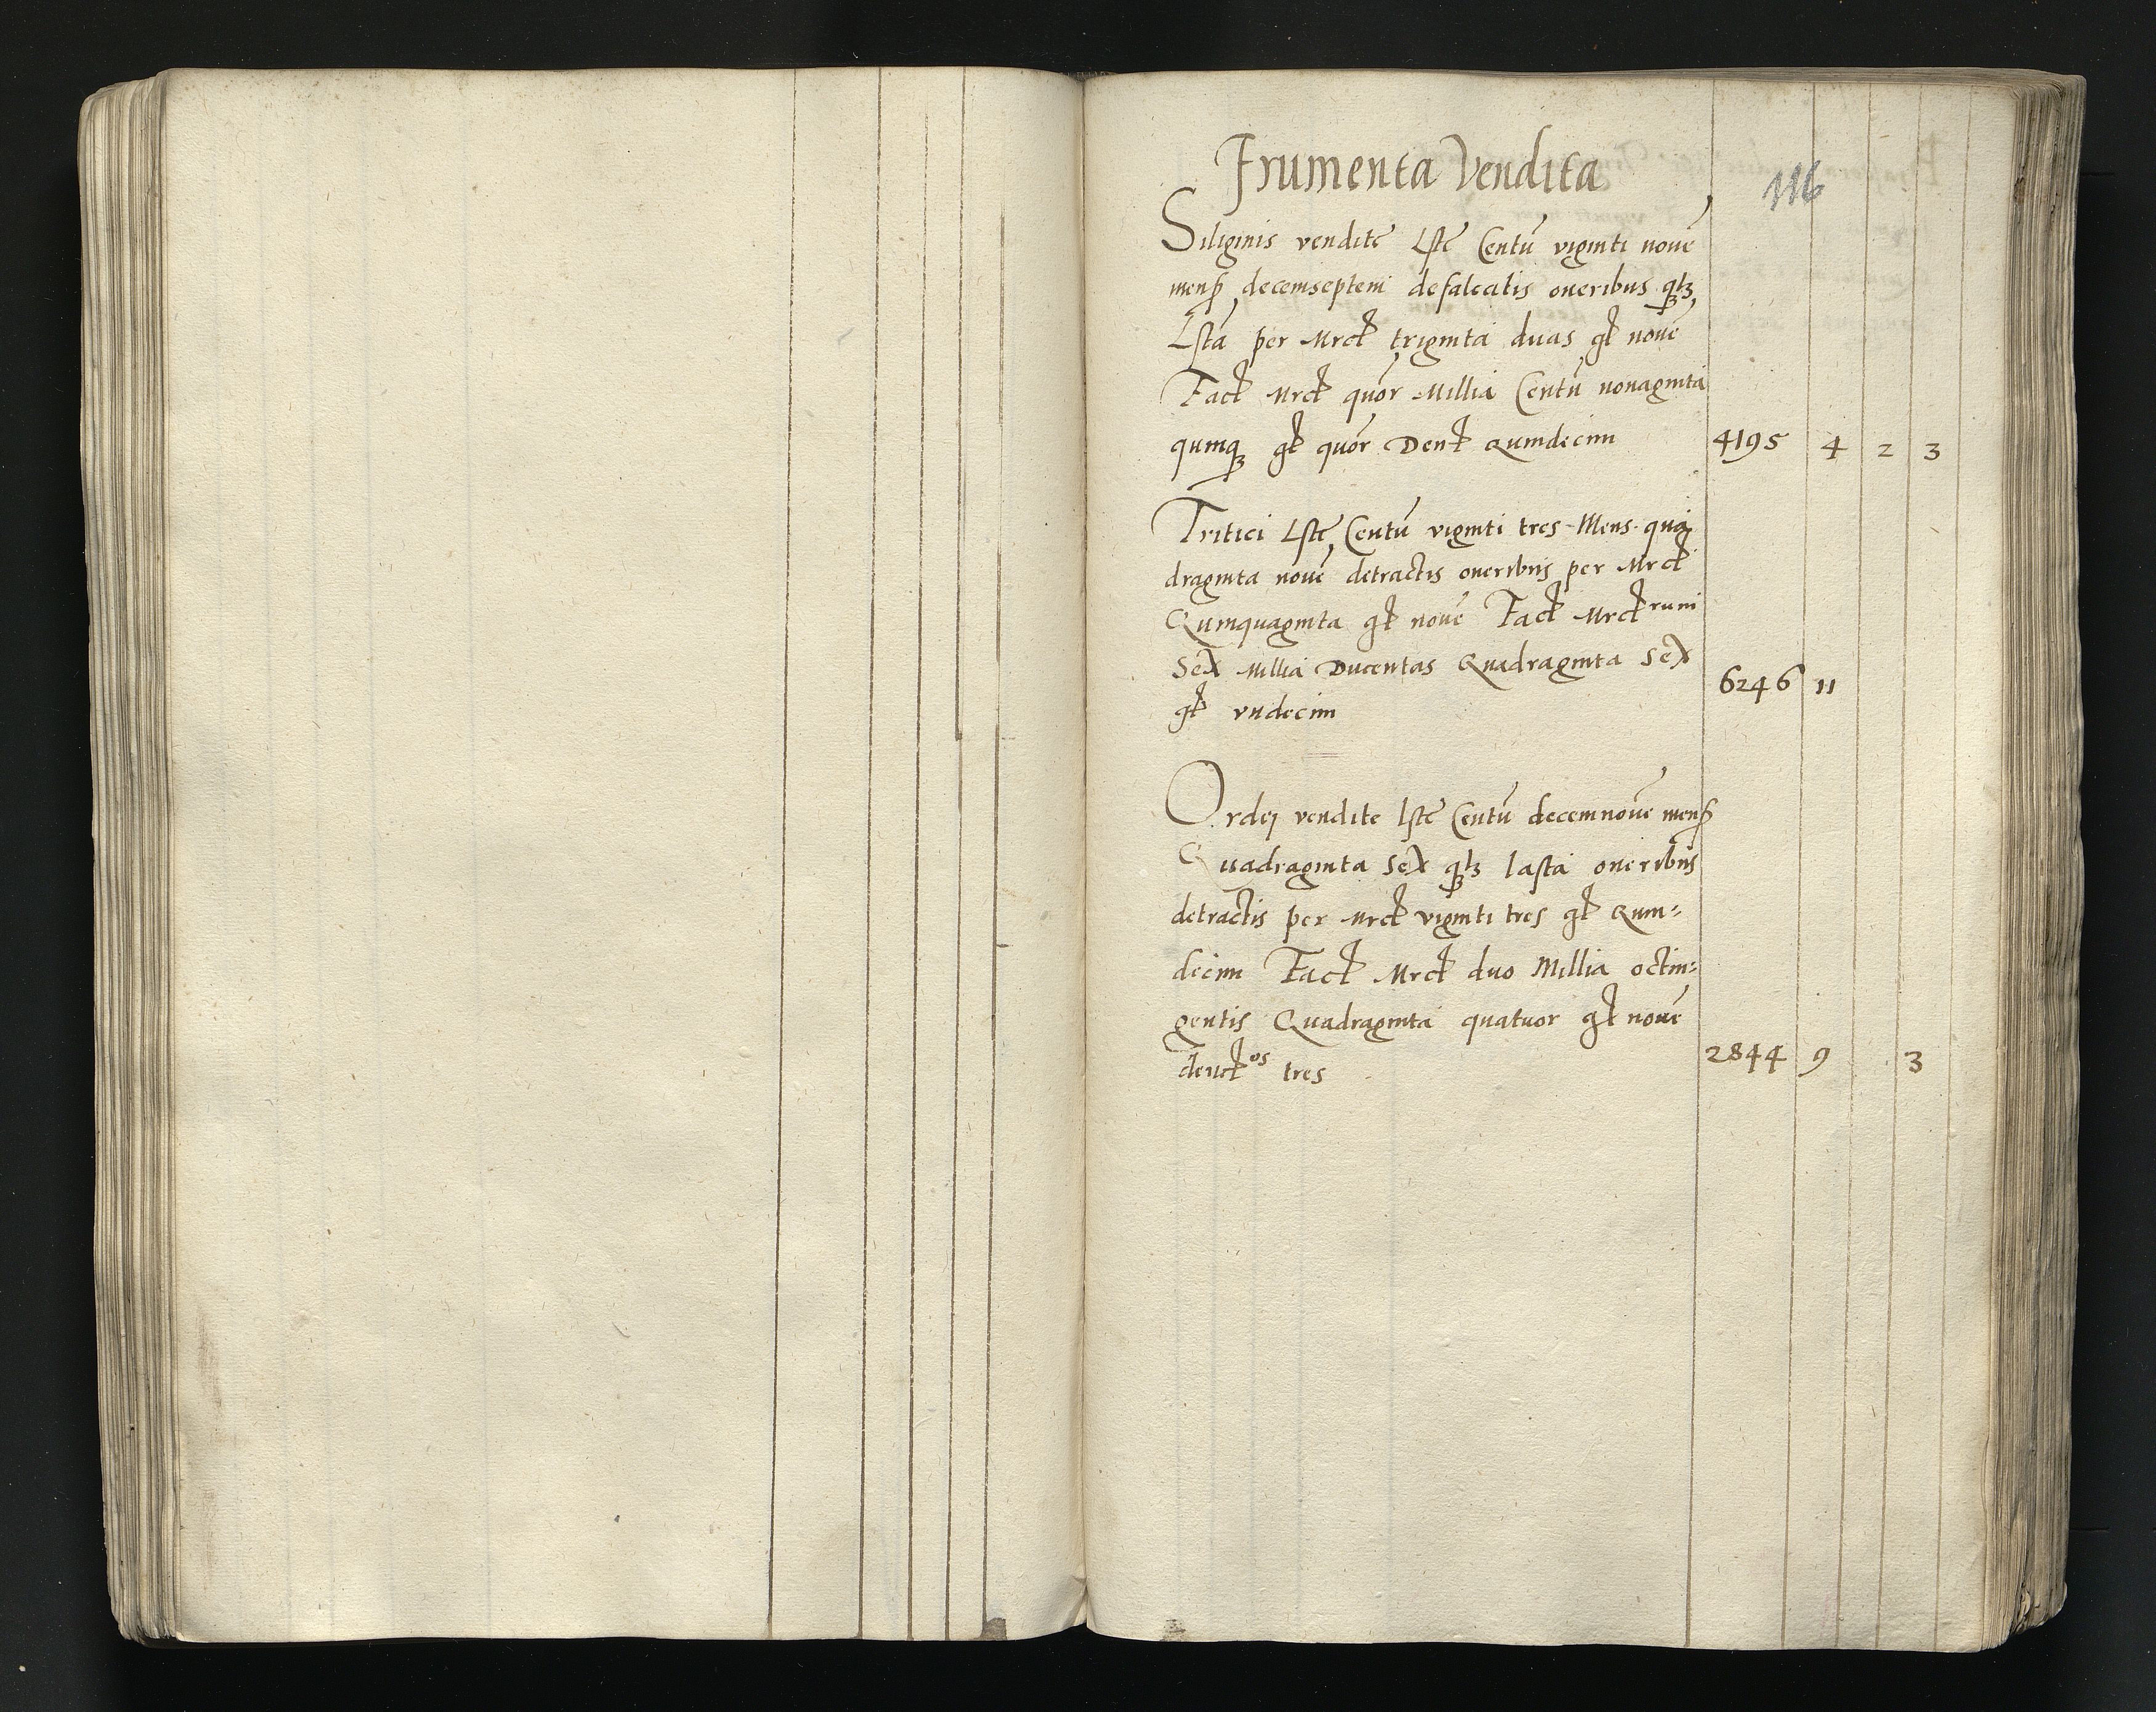 Frumenta Vendita
116
Siliginis vendite Lste Centū viginti novē
mens decemseptem defalcatis oneribus
Lsta per Mrc triginta duas gr novē
Fact Mrc quor Millia Centū nonaginta
quinq gr quor Den Quindecim 4195 4 2 3
Tritici Lste Centū viginti tres Mens qua
draginta novē detractis oneribus per Mrc
Quinquaginta gr novē Fact Mrcrum
Sex Millia Ducentas Quadraginta Sex 6246 11
gr undecim
Ordej vendite lste Centū decemnovē mens
Quadraginta Sex lasta oneribus
detractis per Mrc viginti tres gr Quin=
decim Fact Mrc duo Millia octin=
gentis Quadraginta quatuor gr novē
denos tres 2844 9 3